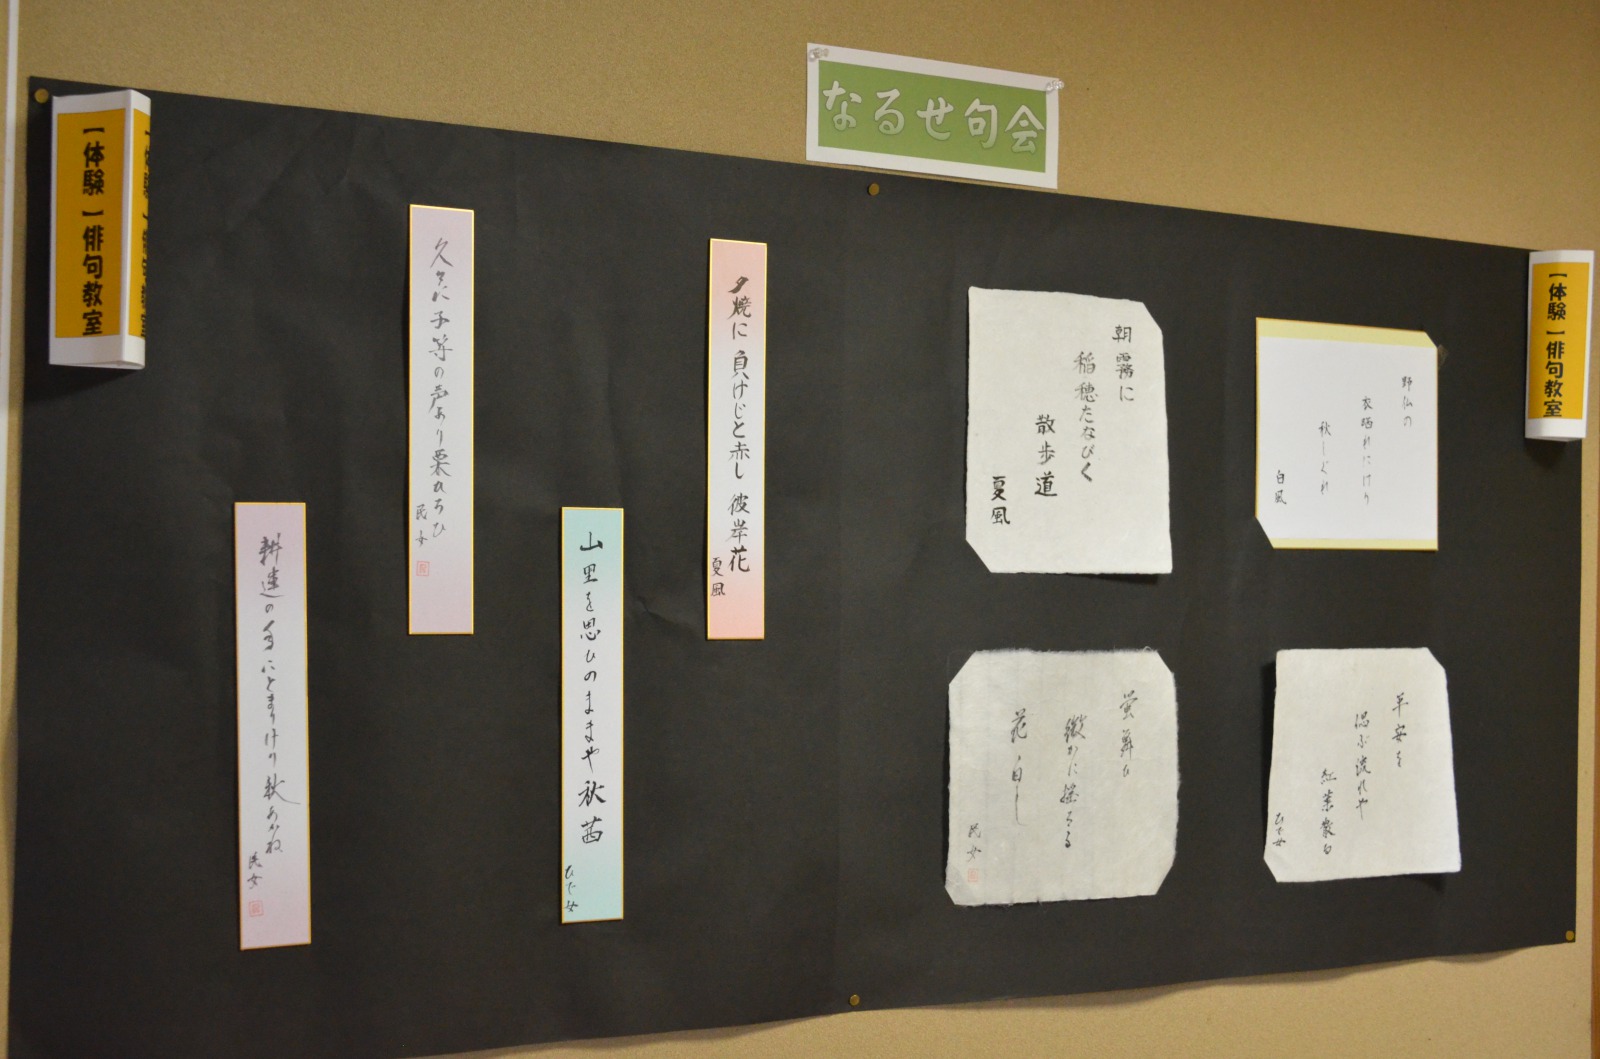 なるせ句会
【体験】俳句教室
【体験】俳句教室
野仏の
衣晒れにけり
秋しぐれ
白風
朝霧に
稲穂たなびく
散歩道
夏風
平安を
偲ぶ流れや
紅葉散る
ひで女
蛍舞ひ
微かに揺るる
花白し
民女
夕焼に負けじと赤し彼岸花
夏風
山里を思ひのままや秋茜
ひで女
久々に子等の声あり栗ひろひ
民女
の手にとまりけり秋あかね
民女